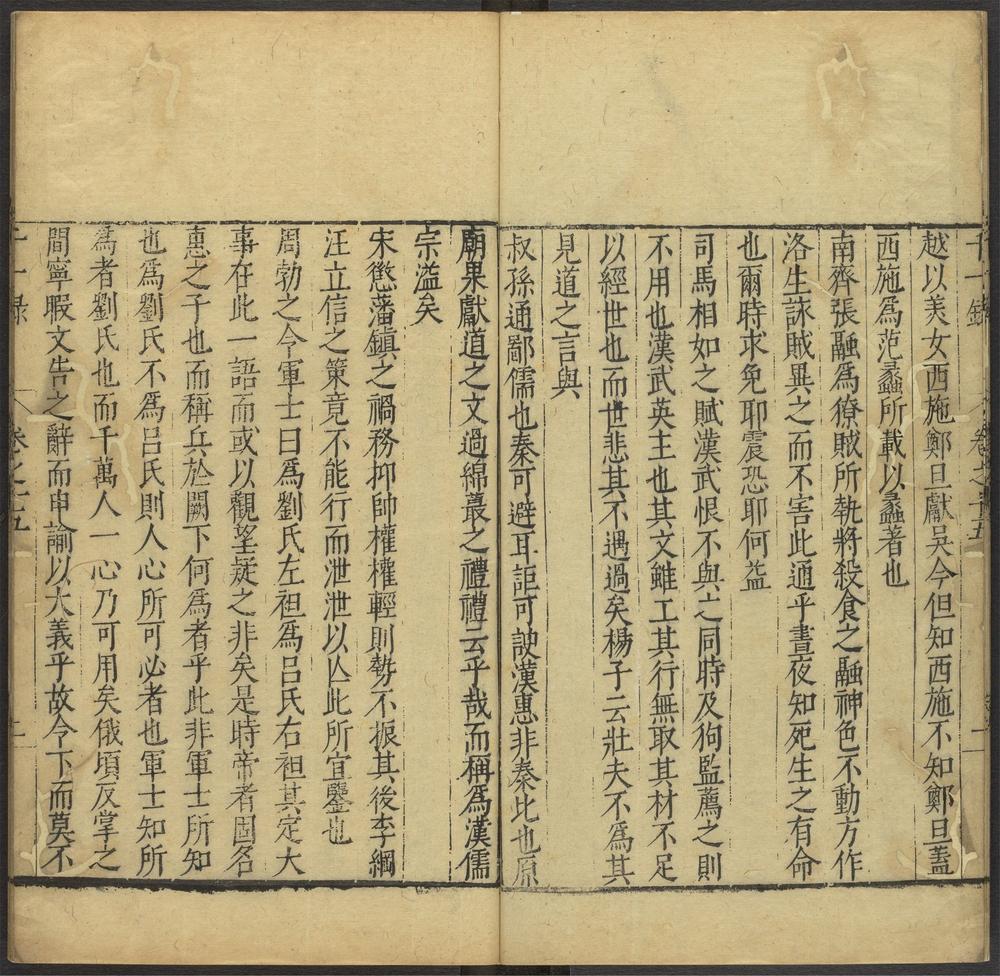 千一錄
卷之十五
二
越以美女西施鄭旦獻吳今但知西施不知鄭旦蓋
西施爲范蠡所載以蠡著也
南齊張融爲獠賊所執將殺食之融神色不動方作
洛生詠賊異之而不害此通乎晝夜知死生之有命
也爾時求免耶震恐耶何益
司馬相如之賦漢武恨不與之同時及狗監薦之則
不用也漢武英主也其文雖工其行無取其材不足
以經世也而世悲其不遇過矣楊子云壯夫不爲其
見道之言與
叔孫通鄙儒也秦可避耳詎可諛漢惠非秦比也原
廟果獻道之文過綿蕞之禮禮云乎哉而稱爲漢儒
宗溢矣
宋懲藩鎮之禍務抑帥權權輕則勢不振其後李綱
汪立信之策竟不能行而泄泄以亾此所宜鑒也
周勃之令軍士曰爲劉氏左袒爲呂氏右袒其定大
事在此一語而或以觀望疑之非矣是時帝者固名
惠之子也而稱兵於闕下何爲者乎此非軍士所知
也爲劉氏不爲呂氏則人心所可必者也軍士知所
爲者劉氏也而千萬人一心乃可用矣俄頃反掌之
間寧暇文告之辭而申諭以大義乎故令下而莫不
千一錄
卷之十五
二